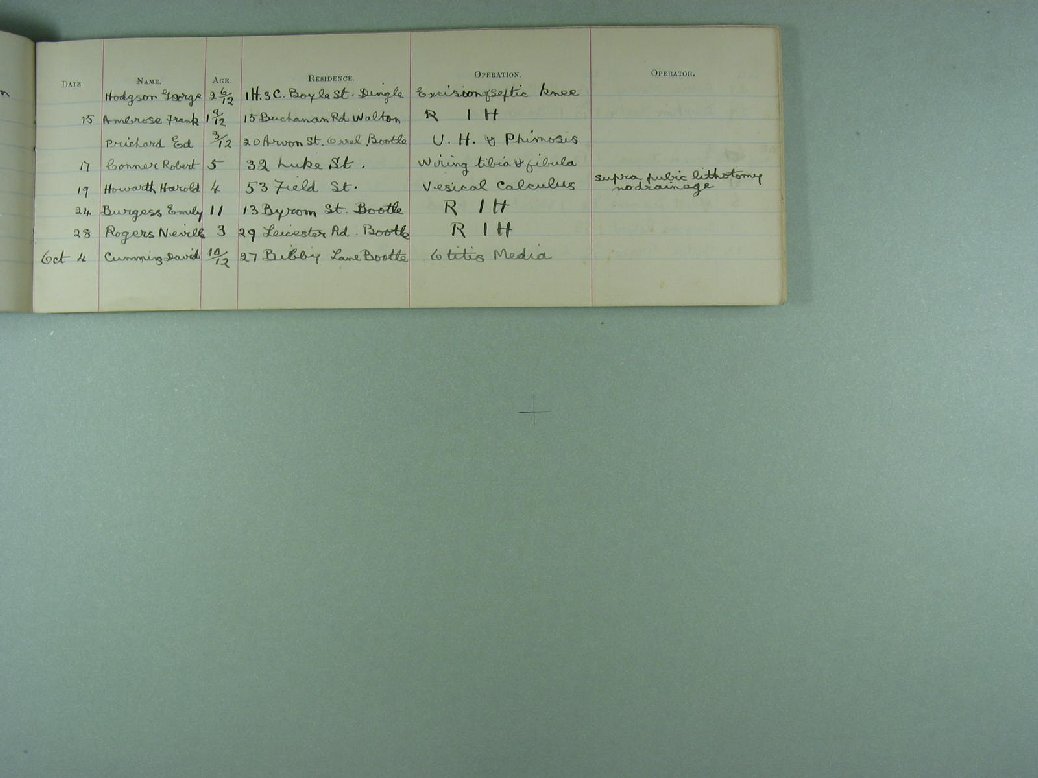 DATE NAME. AGE RESIDENCE. OPERATION. OPERATOR.
Hodgson George 2 6/12 1H.3C. Boyle St. Dingle Excision of septic knee
15 Ambrose Frank 15 Buchanan Rd Walton R I H
Prichard Ed 3/12 20 Arvon St. Orrel Bootle U. H. & Phimosis
17 Conner Robert 5 32 Luke St. Wiring tibia & fibula
19 Howarth Harold 4 53 Field St. Vesical Calculus supra pubic lithotomy
no drainage
24 Burgess Emily 11 13 Byrom St. Bootle R I H
28 Rogers Nevill 3 29 Leicester Rd. Bootle R I H
Oct 4 Cumming David 10/12 27 Bibby Lane Bootle Otitis Media